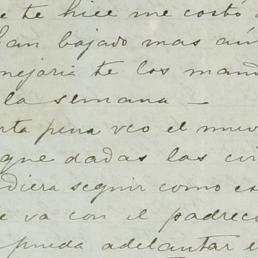 te hice me costó
han bajado mas aún
nejaria te los man
la semana —
ta pena veo el nuev
que dadas las cir
diera seguir como es
e va con el padre
pueda adelantar e